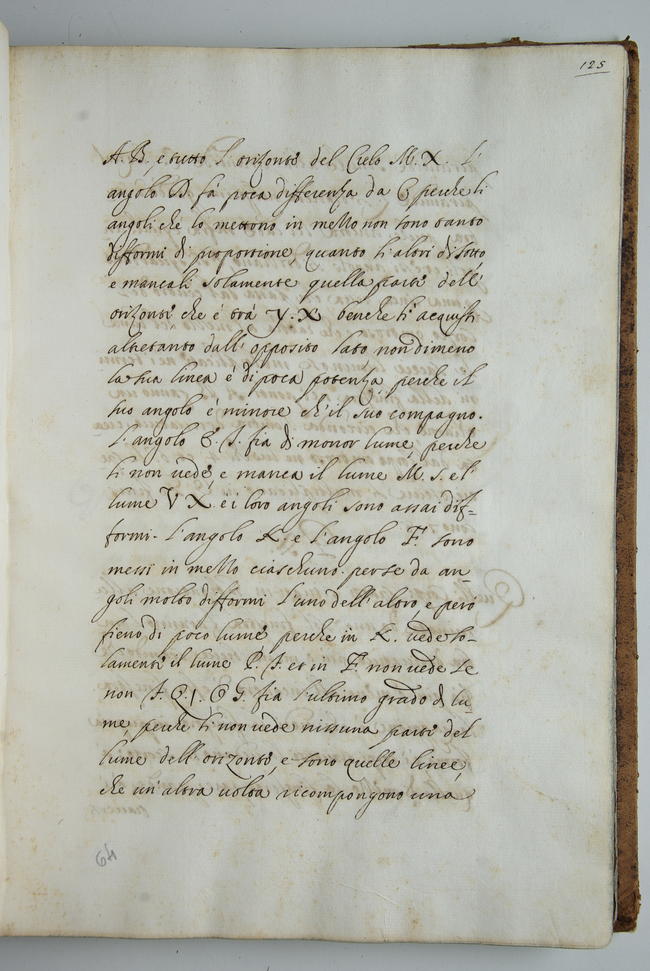 125
A. B. e tutto l'orizonte del Cielo M. X. L'
angolo D. fà poca differenza da C perche li
angoli che lo mettono in mezzo non sono tanto
difformi di proportione, quanto li altri di sotto
e mancali solamente quella parte dell'
orizonte che è trà Y. X. benche li acquisti
altretanto dall'opposito lato non dimeno
la sua linea è di poca potenza perche il
suo angolo è minore ch'il suo compagno.
L'angolo E. I. fia di minor lume, perche
li non vede e manca il lume M. S. el
lume V X. e i loro angoli sono assai dif-
formi. L'angolo K. e l'angolo F. sono
messi in mezzo ciaschuno per se da an-
goli molto difformi l'uno dell'altro, e però
fieno di poco lume perche in K. vede so-
lamente il lume P. T. et in F. non vede se
non T. Q. G. fia l'ultimo grado di lu-
me, perche li non vede nissuna parte del
lume dell'orizonte, e sono quelle linee,
che un'altra volta ricompongono una
64